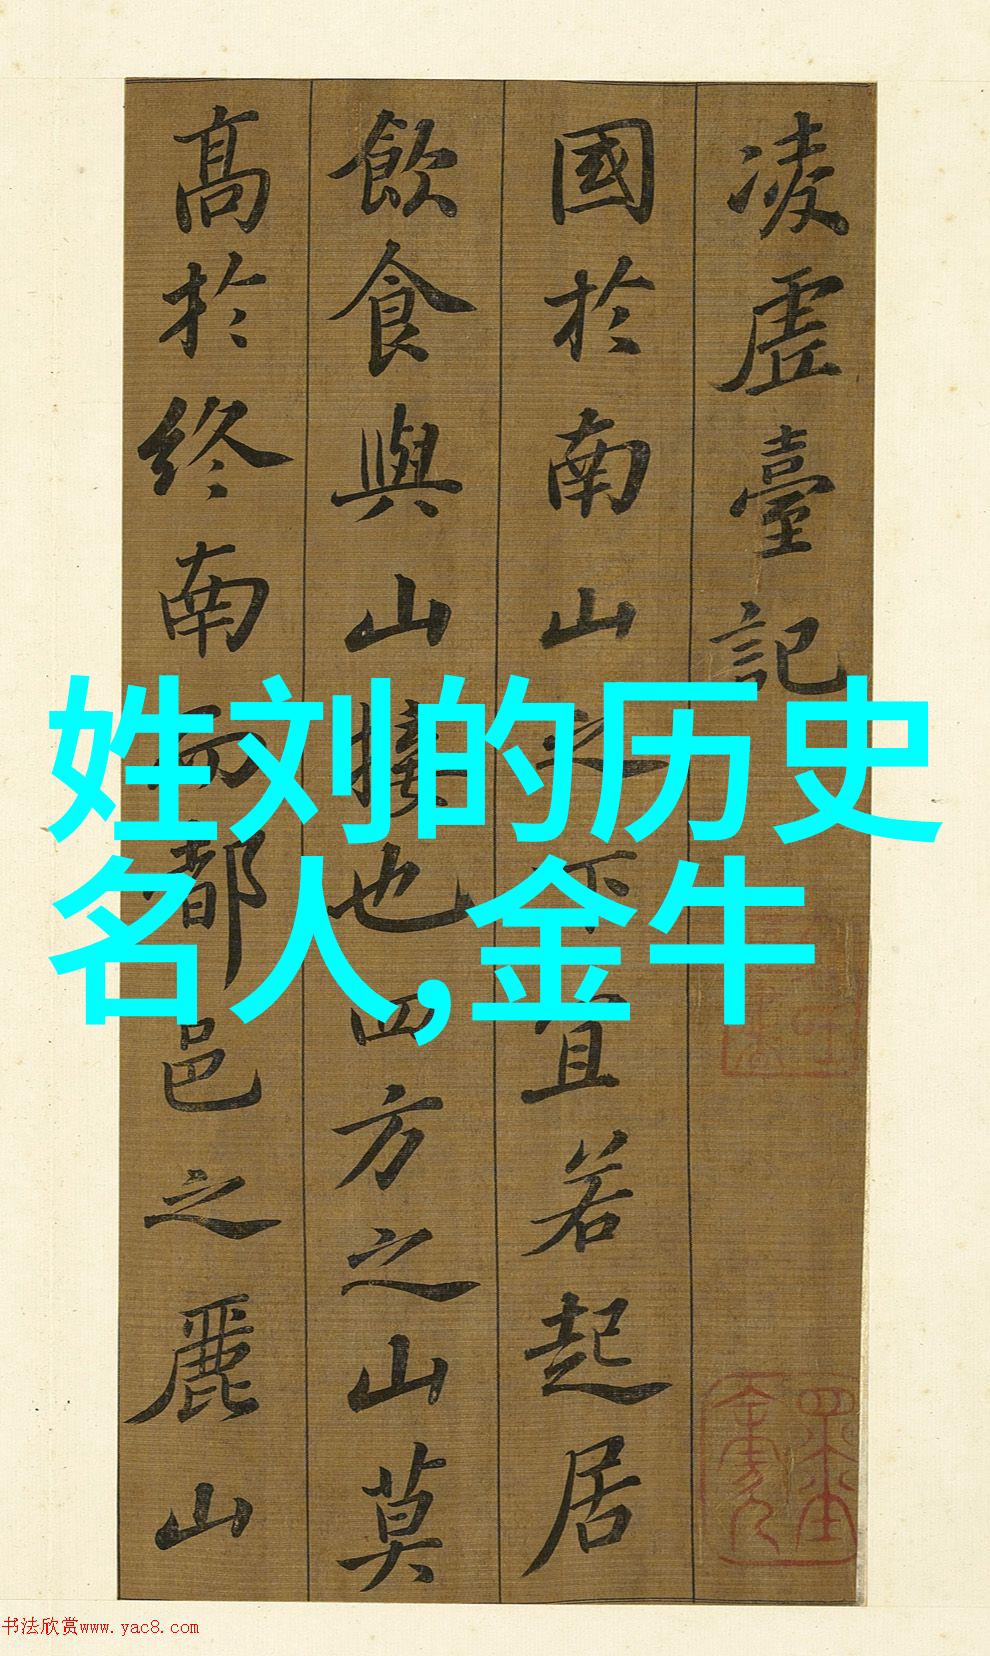 凌虛臺記
國於南山之下宜若起居
飲食與山接也四方之山莫
高於終南而都邑之麗山
姓刘的历史
名人,金牛
书法欣赏www.yac8.com